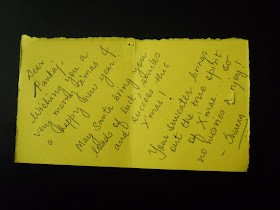 Dear
Pankaj,
Wishing you a
very merry Xmas &
a happy new year!
May Santa bring you
loads of luck, smiles
and success this
Xmas!
Your sweater brings
out the true spirit
of X'mas... so
no humour & enjoy!
- Swarny